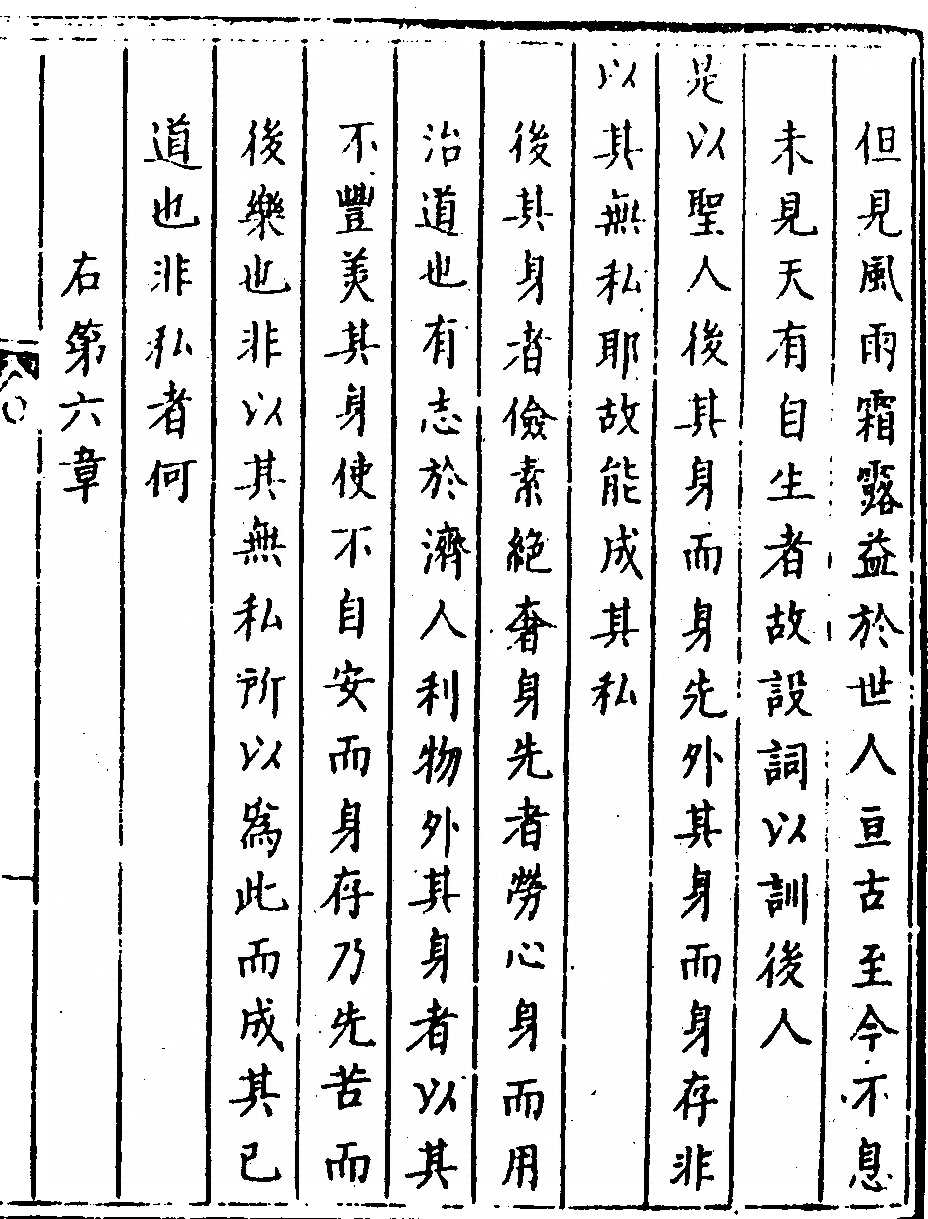 但見風雨霜露益於世人亘古至今不息
未見天有自生者故設詞以訓後人
是以聖人後其身而身先外其身而身存非
以其無私耶故能成其私
後其身者儉素絕奢身先者勞心身而用
治道也有志於濟人利物外其身者以其
不豐美其身使不自安而身存乃先苦而
後樂也非以其無私所以為此而成其已
道也非私者何
右第六章